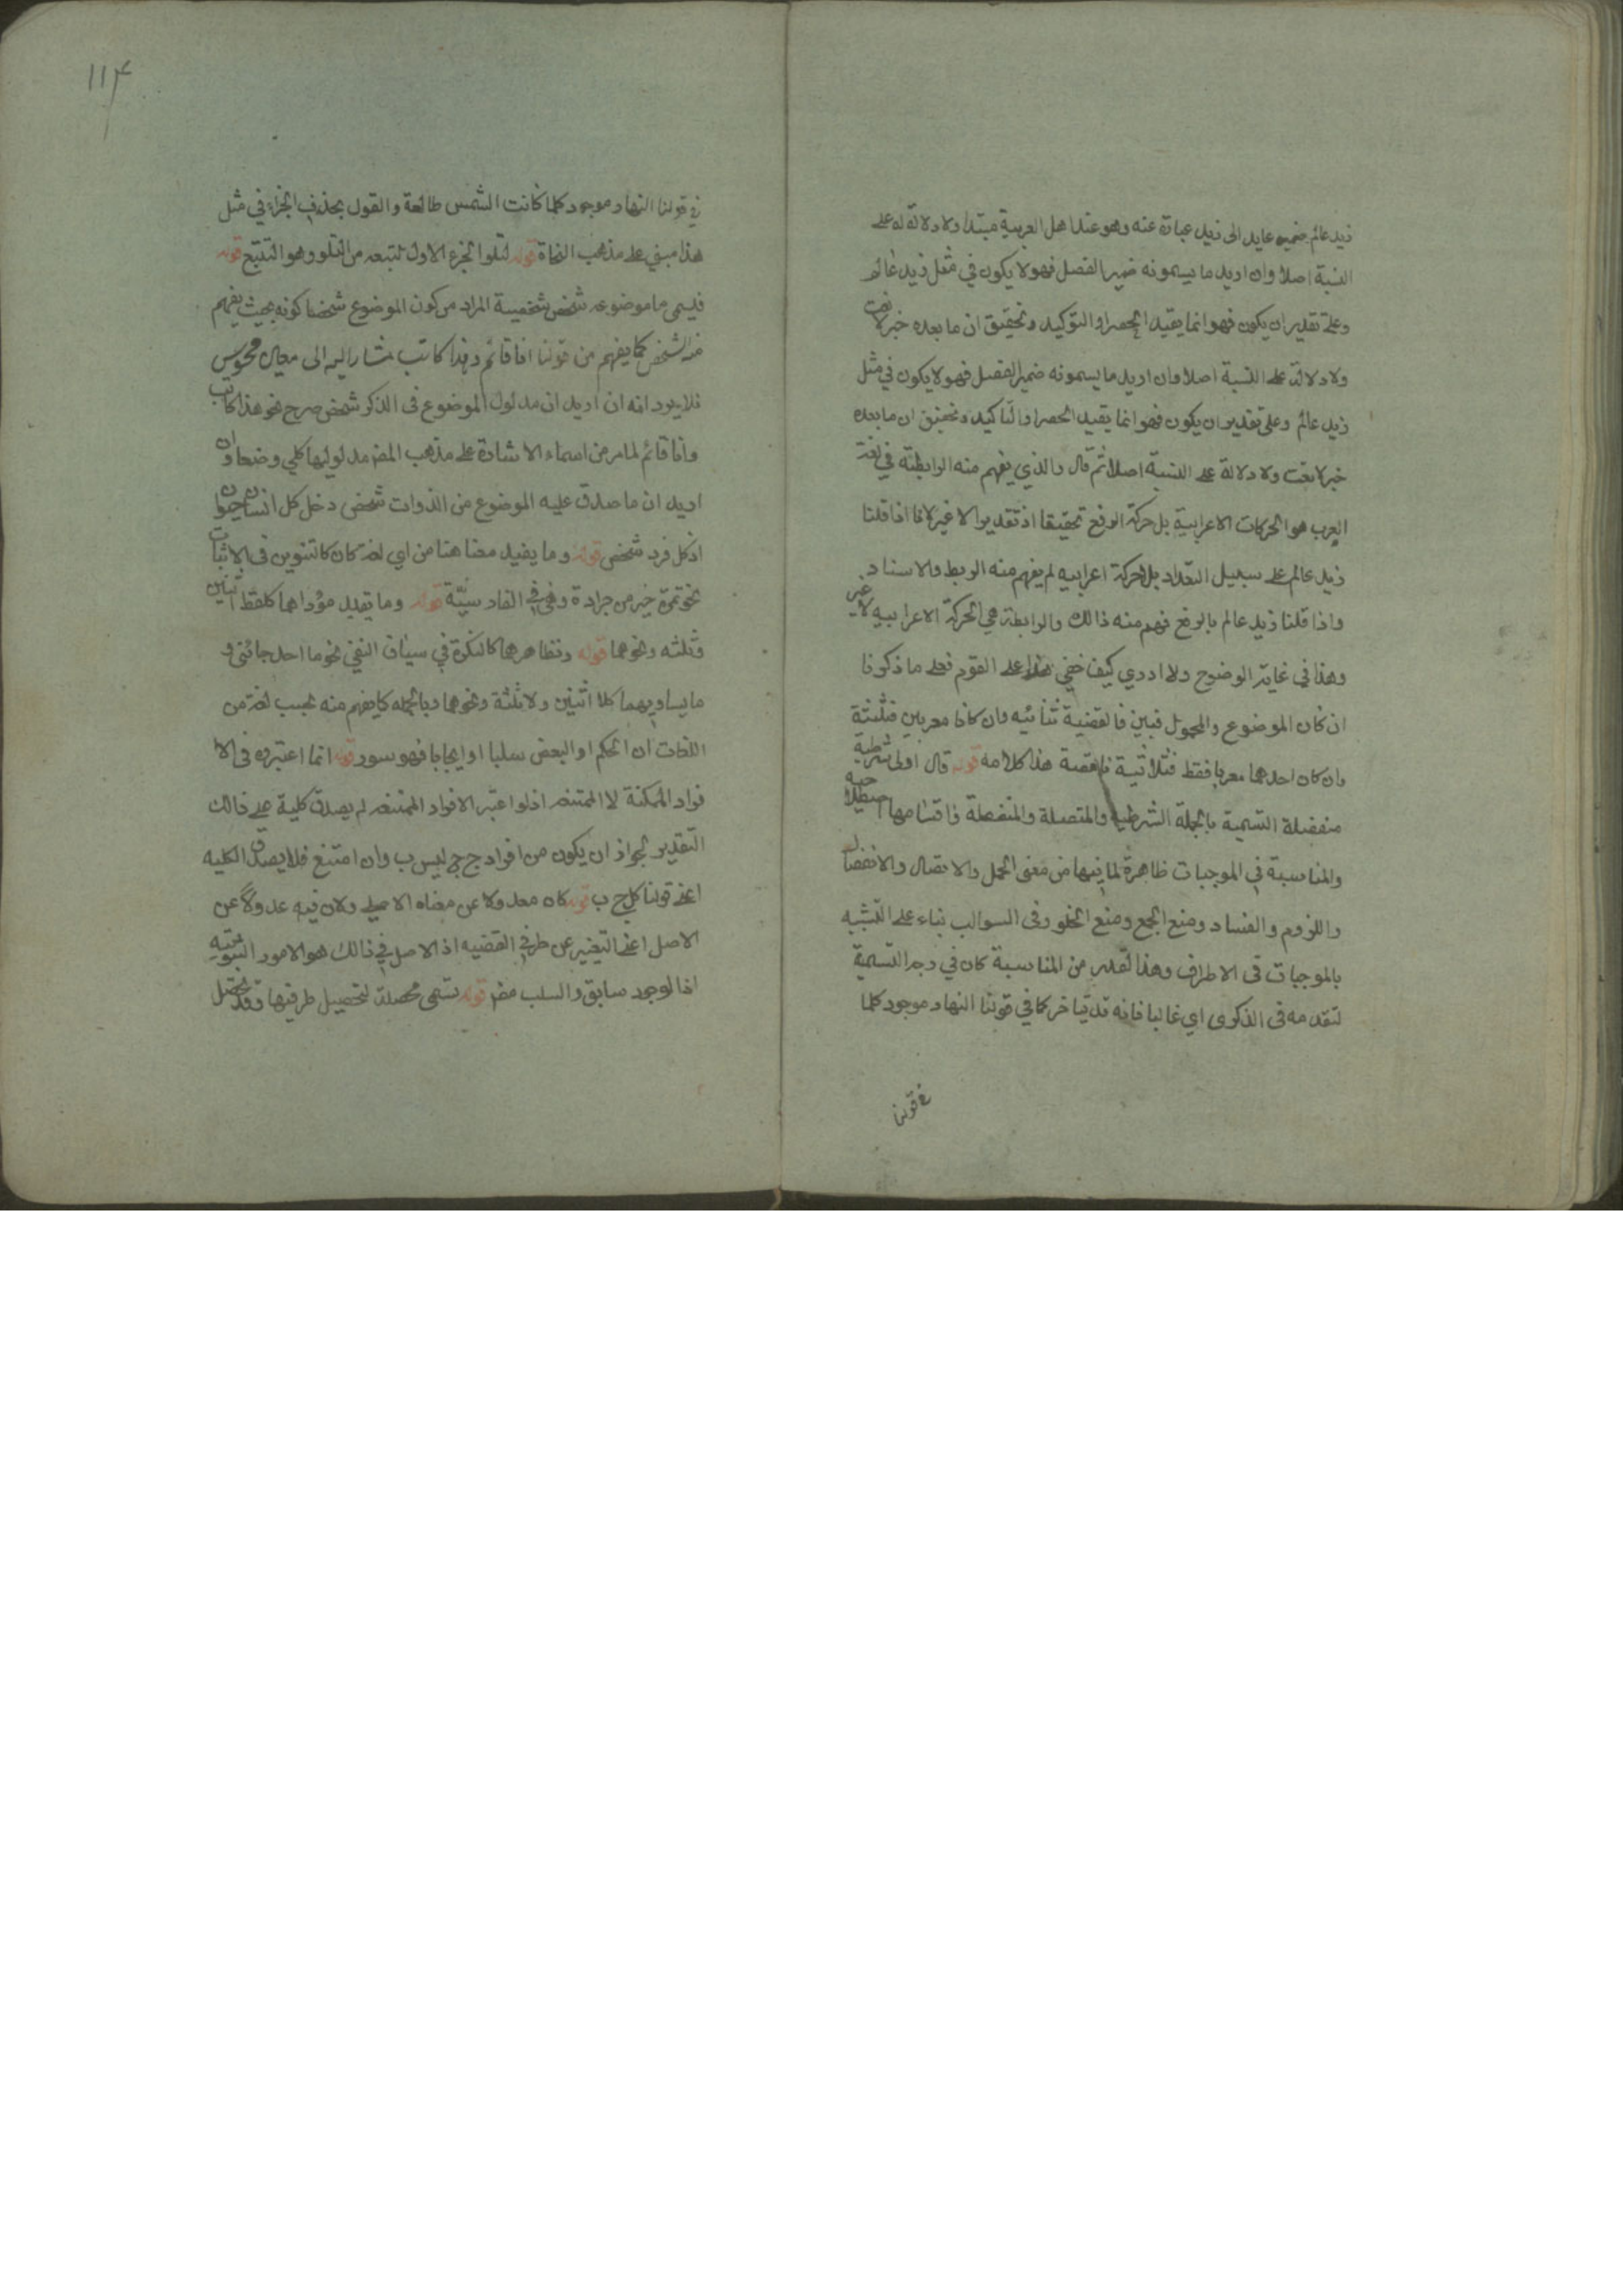 زيد عالم ضميره عايد الى زيد عبارة عنه وهو عند اهل العربية مبتدا ولا دلالة له على
النسبة اصلا وان اريد ما يسمونه ضمير الفصل فهو لا يكون في مثل زيد عالم
وعلى تقدير ان يكون فهو انما يفيد الحصر او التوكيد وتحقيق ان ما بعده خبر لا نعت
ولا دلالة على النسبة اصلا وان اريد ما يسمونه ضمير الفصل فهو لا يكون في مثل
زيد عالم وعلى تقدير ان يكون فهو انما يفيد الحصر او التاكيد وتحقيق ان ما بعده
خبر لا نعت ولا دلالة على النسبة اصلا ثم قال والذي يفهم منه الرابطة في لغة
العرب هو الحركات الاعرابية بل حركة الرفع تحقيقا او تقديرا لا غير لانا اذا قلنا
زيد عالم على سبيل التعداد بلا حركة اعرابيه لم يفهم منه الربط والاسناد
واذا قلنا زيد عالم بالرفع فهم منه ذالك والرابطة هي الحركة الاعرابيه لا غير
وهذا في غاية الوضوح ولا ادري كيف خفي هذا على القوم فعلى ما ذكرنا
ان كان الموضوع والمحمول مبنيين فالقضية ثنائيه وان كانا معربين فثلثية
وان كان احدهما معربا فقط فثلاثية ناقصة هذا كلامه قوله قال اولى شرطية
منفصلة التسمية بالحملة الشرطية والمتصلة والمنفصلة واقسامها اصطلاحيه
والمناسبة في الموجبات ظاهرة لما فيها من معنى الحمل والاتصال والانفصال
واللزوم والعناد ومنع الجمع ومنع الخلو وفي السوالب بناء على التشبيه
بالموجبات في الاطراف وهذا القدر من المناسبة كان في وجه التسمية
لتقدمه في الذكرى اي غالبا فانه قد يتاخر كما في قولنا النهار موجود كلما
في قولنا
١١٤
في قولنا النهار موجود كلما كانت الشمس طالعة والقول بحذف الجزاء في مثل
هذا مبني على مذهب النحاة قوله لتلوا الجزء الاول لتبعه من التلو وهو التتبع قوله
فيسمى ما موضوعه شخص شخصية المراد من كون الموضوع شخصا كونه بحيث يفهم
منه الشخص كما يفهم من قولنا انا قائم وهذا كاتب مشار اليه الى معين محسوس
فلا يرد انه ان اريد ان مدلول الموضوع في الذكر شخص صرح نحو هذا كاتب
وانا قائم لما مر من اسماء الاشارة على مذهب المصه مدلوليها كلي وضعا وان
اريد ان ما صدق عليه الموضوع من الذوات شخص دخل كل انسان حيوان
اذ كل فرد شخص قوله وما يفيد معناهما من اي لغة كان كالتنوين في الاثبات
نحو تمرة خير من جرادة وهي في الفارسيّة قوله وما يفيد مؤداهما كلفظ اثنين
وثلثه ونحوهما قوله ونظاهرهما كالنكرة في سياق النفي نحو ما احد جائني و
ما يساويهما كلا اثنين ولا ثلثة ونحوهما وبالجمله كلما يفهم منه بحسب لغة من
اللغات ان الحكم او البعض سلبا او ايجابا فهو سور قوله انما اعتبره في الا
فراد الممكنة لا الممتنعه اذ لو اعتبر الافراد الممتنعه لم يصدق كلية على ذالك
التقدير لجواز ان يكون من افراد ج ج ليس ب وان امتنع فلا يصدق الكليه
اعنى قولنا كل ج ب قوله كان معدولا عن معناه الاصلي ولان فيه عدولا عن
الاصل اعنى التعبير عن طرفي القضيه اذ الاصل في ذالك هو الامور الثبوتيه
اذ الوجود سابق والسلب مضه قوله تسمى محصلة لتحصيل طرفيها وقد تختص